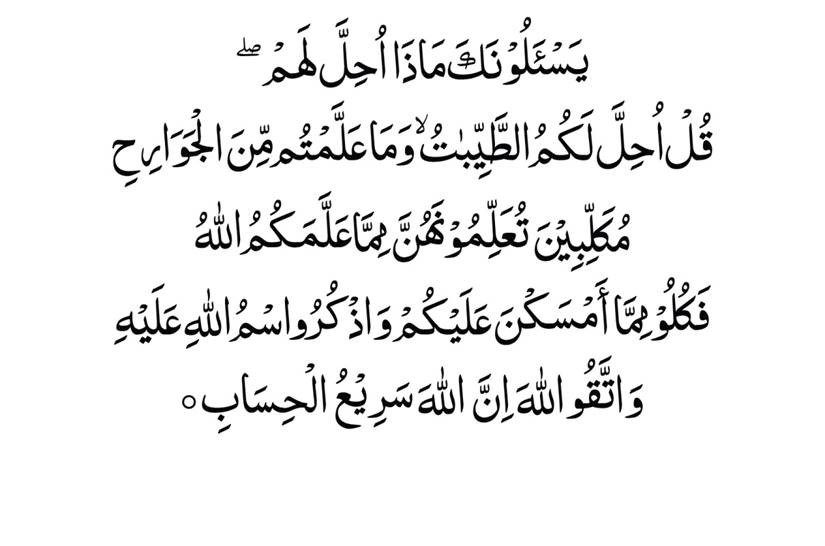 يَسْـَٔلُوْنَكَ مَاذَا اُحِلَّ لَهُمْ ۖ
قُلْ اُحِلَّ لَكُمُ الطَّيِّبٰتُ ۙ وَمَا عَلَّمْتُمْ مِّنَ الْجَوَارِحِ
مُكَلِّبِيْنَ تُعَلِّمُوْنَهُنَّ مِمَّا عَلَّمَكُمُ اللّٰهُ
فَكُلُوْ مِمَّا أَمْسَكْنَ عَلَيْكُمْ وَاذْكُرُوا سْمُ اللّٰهِ عَلَيْهِ
وَاتَّقُو اللّٰهَ اِنَّ اللّٰهَ سَرِيْعُ الْحِسَابِ ○